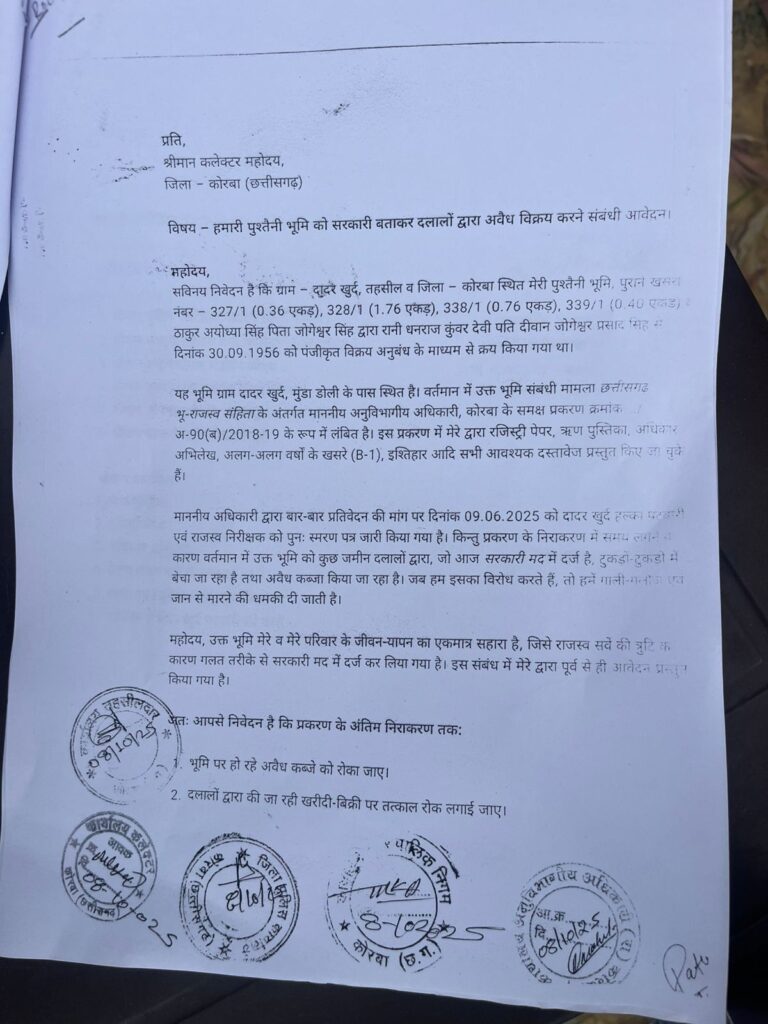 प्रति,
श्रीमान कलेक्टर महोदय,
जिला – कोरबा (छत्तीसगढ़)
विषय – हमारी पुश्तैनी भूमि को सरकारी बताकर दलालों द्वारा अवैध विक्रय करने संबंधी आवेदन।
महोदय,
सविनय निवेदन है कि ग्राम – दादर खुर्द, तहसील व जिला – कोरबा स्थित मेरी पुश्तैनी भूमि, पुराने खसरा
नंबर – 327/1 (0.36 एकड़), 328/1 (1.76 एकड़), 338/1 (0.76 एकड़), 339/1 (0.40 एकड़)
ठाकुर अयोध्या सिंह पिता जोगेश्वर सिंह द्वारा रानी धनराज कुंवर देवी पति दीवान जोगेश्वर प्रसाद सिंह से
दिनांक 30.09.1956 को पंजीकृत विक्रय अनुबंध के माध्यम से क्रय किया गया था।
यह भूमि ग्राम दादर खुर्द, मुंडा डोली के पास स्थित है। वर्तमान में उक्त भूमि संबंधी मामला छत्तीसगढ़
भू-राजस्व संहिता के अंतर्गत माननीय अनुविभागीय अधिकारी, कोरबा के समक्ष प्रकरण क्रमांक .../
अ-90(ब)/2018-19 के रूप में लंबित है। इस प्रकरण में मेरे द्वारा रजिस्ट्री पेपर, ऋण पुस्तिका, अधिकार
अभिलेख, अलग-अलग वर्षों के खसरे (B-1), इश्तिहार आदि सभी आवश्यक दस्तावेज प्रस्तुत किए जा चुके
हैं।
माननीय अधिकारी द्वारा बार-बार प्रतिवेदन की मांग पर दिनांक 09.06.2025 को दादर खुर्द हल्का पटवारी
एवं राजस्व निरीक्षक को पुनः स्मरण पत्र जारी किया गया है। किन्तु प्रकरण के निराकरण में समय लगने के
कारण वर्तमान में उक्त भूमि को कुछ जमीन दलालों द्वारा, जो आज सरकारी मद में दर्ज है, टुकड़ो-टुकड़ो में
बेचा जा रहा है तथा अवैध कब्जा किया जा रहा है। जब हम इसका विरोध करते हैं, तो हमें गाली-गलौज एवं
जान से मारने की धमकी दी जाती है।
महोदय, उक्त भूमि मेरे व मेरे परिवार के जीवन-यापन का एकमात्र सहारा है, जिसे राजस्व सर्वे की त्रुटि के
कारण गलत तरीके से सरकारी मद में दर्ज कर लिया गया है। इस संबंध में मेरे द्वारा पूर्व से ही आवेदन प्रस्तुत
किया गया है।
अतः आपसे निवेदन है कि प्रकरण के अंतिम निराकरण तक:
1. भूमि पर हो रहे अवैध कब्जे को रोका जाए।
2. दलालों द्वारा की जा रही खरीदी-बिक्री पर तत्काल रोक लगाई जाए।
कार्यालय तहसीलदार
कार्यालय कलेक्टर
आवक
कोरबा (छत्तीसगढ़)
08-10-025
जिला पुलिस
कोरबा (छत्तीसगढ़)
पालिक निगम
8-10-2025
कोरबा (छ.ग.)
कार्यालय अनुविभागीय अधिकारी (रा)
आ.क्र.
दि. 08/10/25